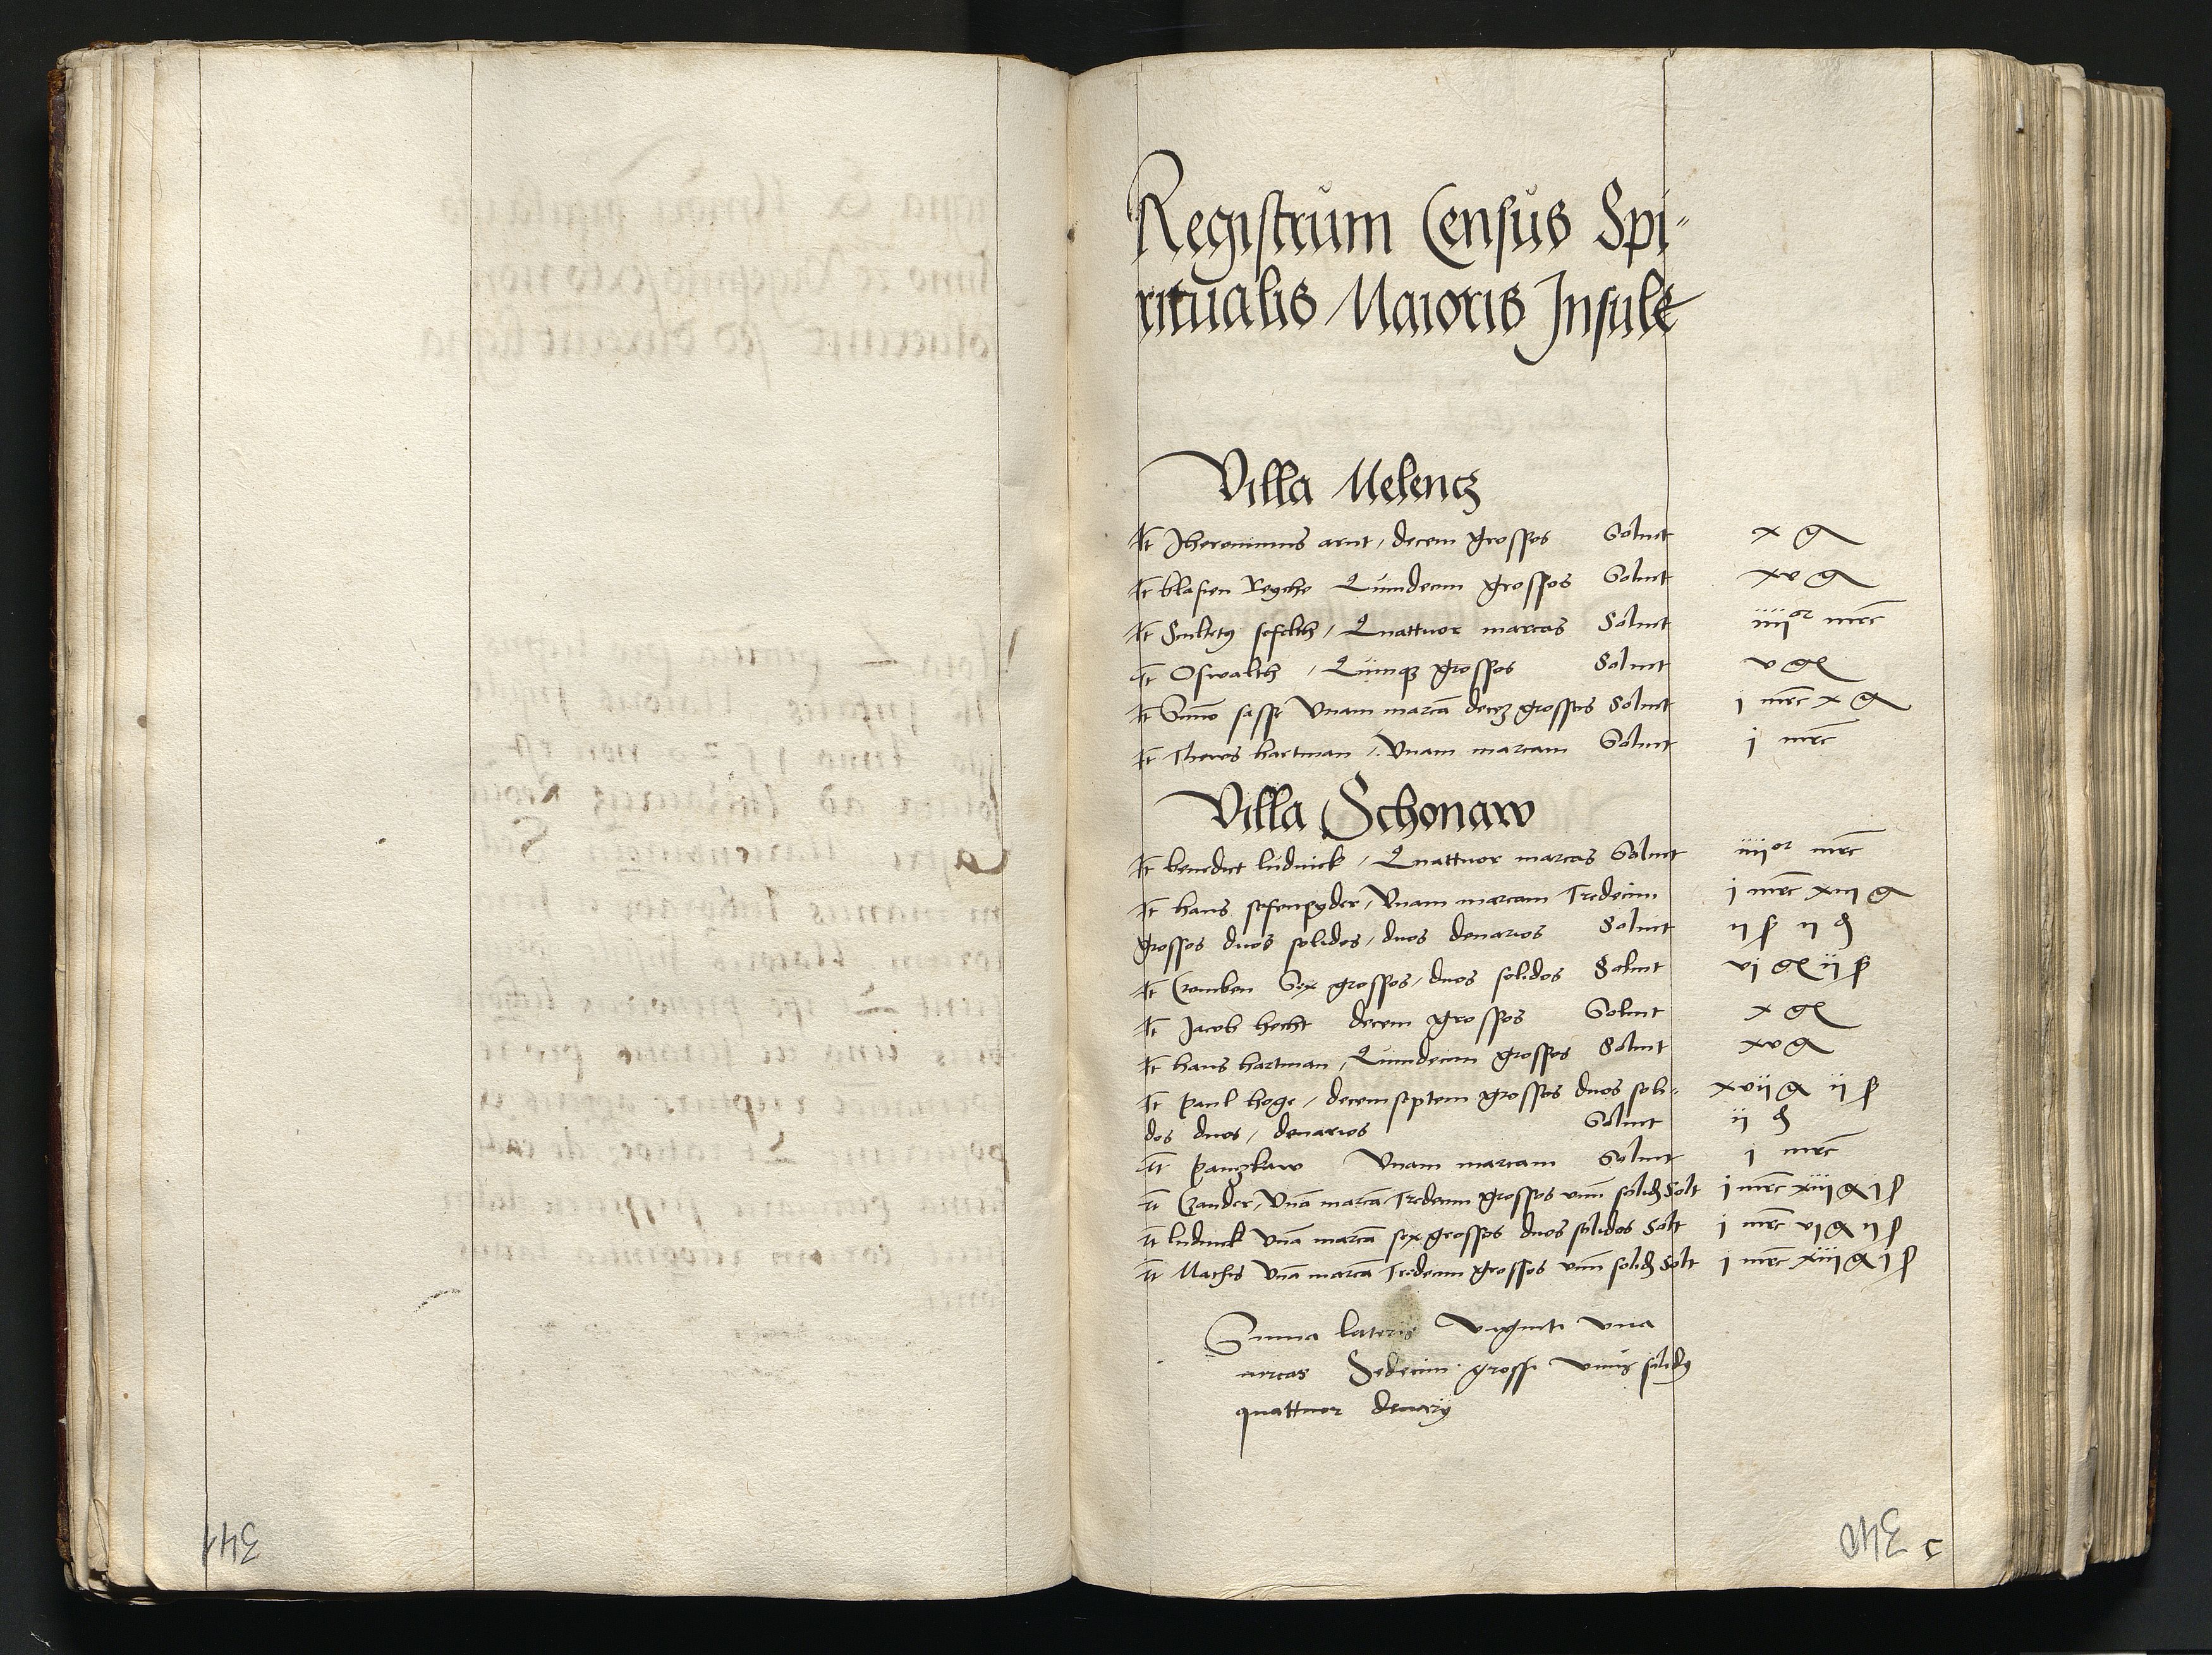 Registrum Census Spi-
ritualis Maioris Insule
Villa Melencz
It Jheronimus arnt, decem grossos Soluit x g
It blasien Reyche Quindecim grossos Soluit xv g
It Scultetus Quattuor marcas Soluit iiiior mrc
It Oswalth, Quinque grossos Soluit v g
It Simo sasse Vnam marca decez grossos Soluit j mrc x g
It Thewes hartman, Vnam marcam Soluit j mrc
Villa Schonaw
It benedict ludwick, Quattuor marcas Soluit iiiior mrc
It hans Vnam marcam Tredecim j mrc xiij g
grossos duos solidos, duos denarios Soluit ij ß ij d
It Cromben Sex grossos, duos solidos Soluit vj g ij ß
It Jacob hecht decem grossos Soluit x g
It hans hartman, Quindecim grossos Soluit xv g
It paul hoge, decemseptem grossos duos soli- xvij g ij ß
dos duos, denarios Soluit ij d
It panzkaw Vnam marcam Soluit j mrc
It Czander, Vna marca Tredecim grossos vnu solid Solt j mrc xiij g j ß
It ludwick Vna marca sex grossos duos solidos Solt j mrc vj g ij ß
It Mathis Vna marca Tredecim grossos vnu solid Solt j mrc xiij g j ß
Suma lateris viginti vna
mrcas Sedecim grossi vnus solidus
quattuor denarij
341
340